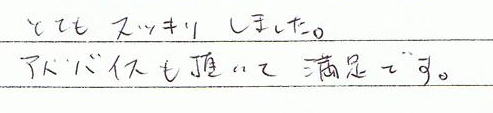 とても スッキリ しました。
アドバイスも頂いて 満足です。